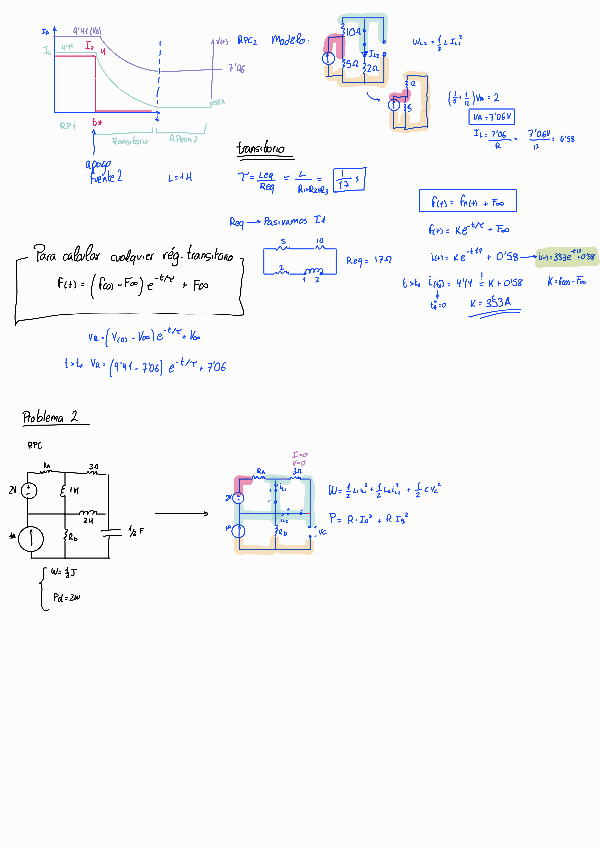 4'41 (VA)
4'41
I2
4
V(t)
7'06
0'58A
t*
RP1
Transitorio
apago
fuente 2
L=1H
RPC2 Modelo:
10Ω
5Ω
2Ω
IL2
12
5
WL2 = 1/2 L IL²
(1/5 + 1/12) VA = 2
VA = 7'06V
IL = 7'06/R = 7'06V/12 = 0'58
transitorio
τ = Leq/Req = L/R1+R2+R3 = 1/17 s
Req → Pasivamos I1
5 10
2 1 2
Req = 17Ω
f(t) = fn(t) + F∞
f(t) = Ke^-t/τ + F∞
i(t) = Ke^-t17 + 0'58 → i(t)=3'53e^-t17+0'58
t>t* i(t*) = 4'41 = K + 0'58
K = F(0) - F∞
t*=0
K = 3'53A
Para calcular cualquier rég. transitorio
F(t) = (F(0) - F∞) e^-t/τ + F∞
VR = (V(0) - V∞) e^-t/τ + V∞
t>t* VR = (4'41 - 7'06) e^-t/τ + 7'06
Problema 2
RPC
RA 3Ω
2V
1H
2H
RD
1/2 F
W= 1/2 J
Pd=2W
I=0
V=0
RA 3Ω
2V
iL1
RD
VC
W = 1/2 L1 i1² + 1/2 L2 i2² + 1/2 C VC²
P = R·IA² + R IB²